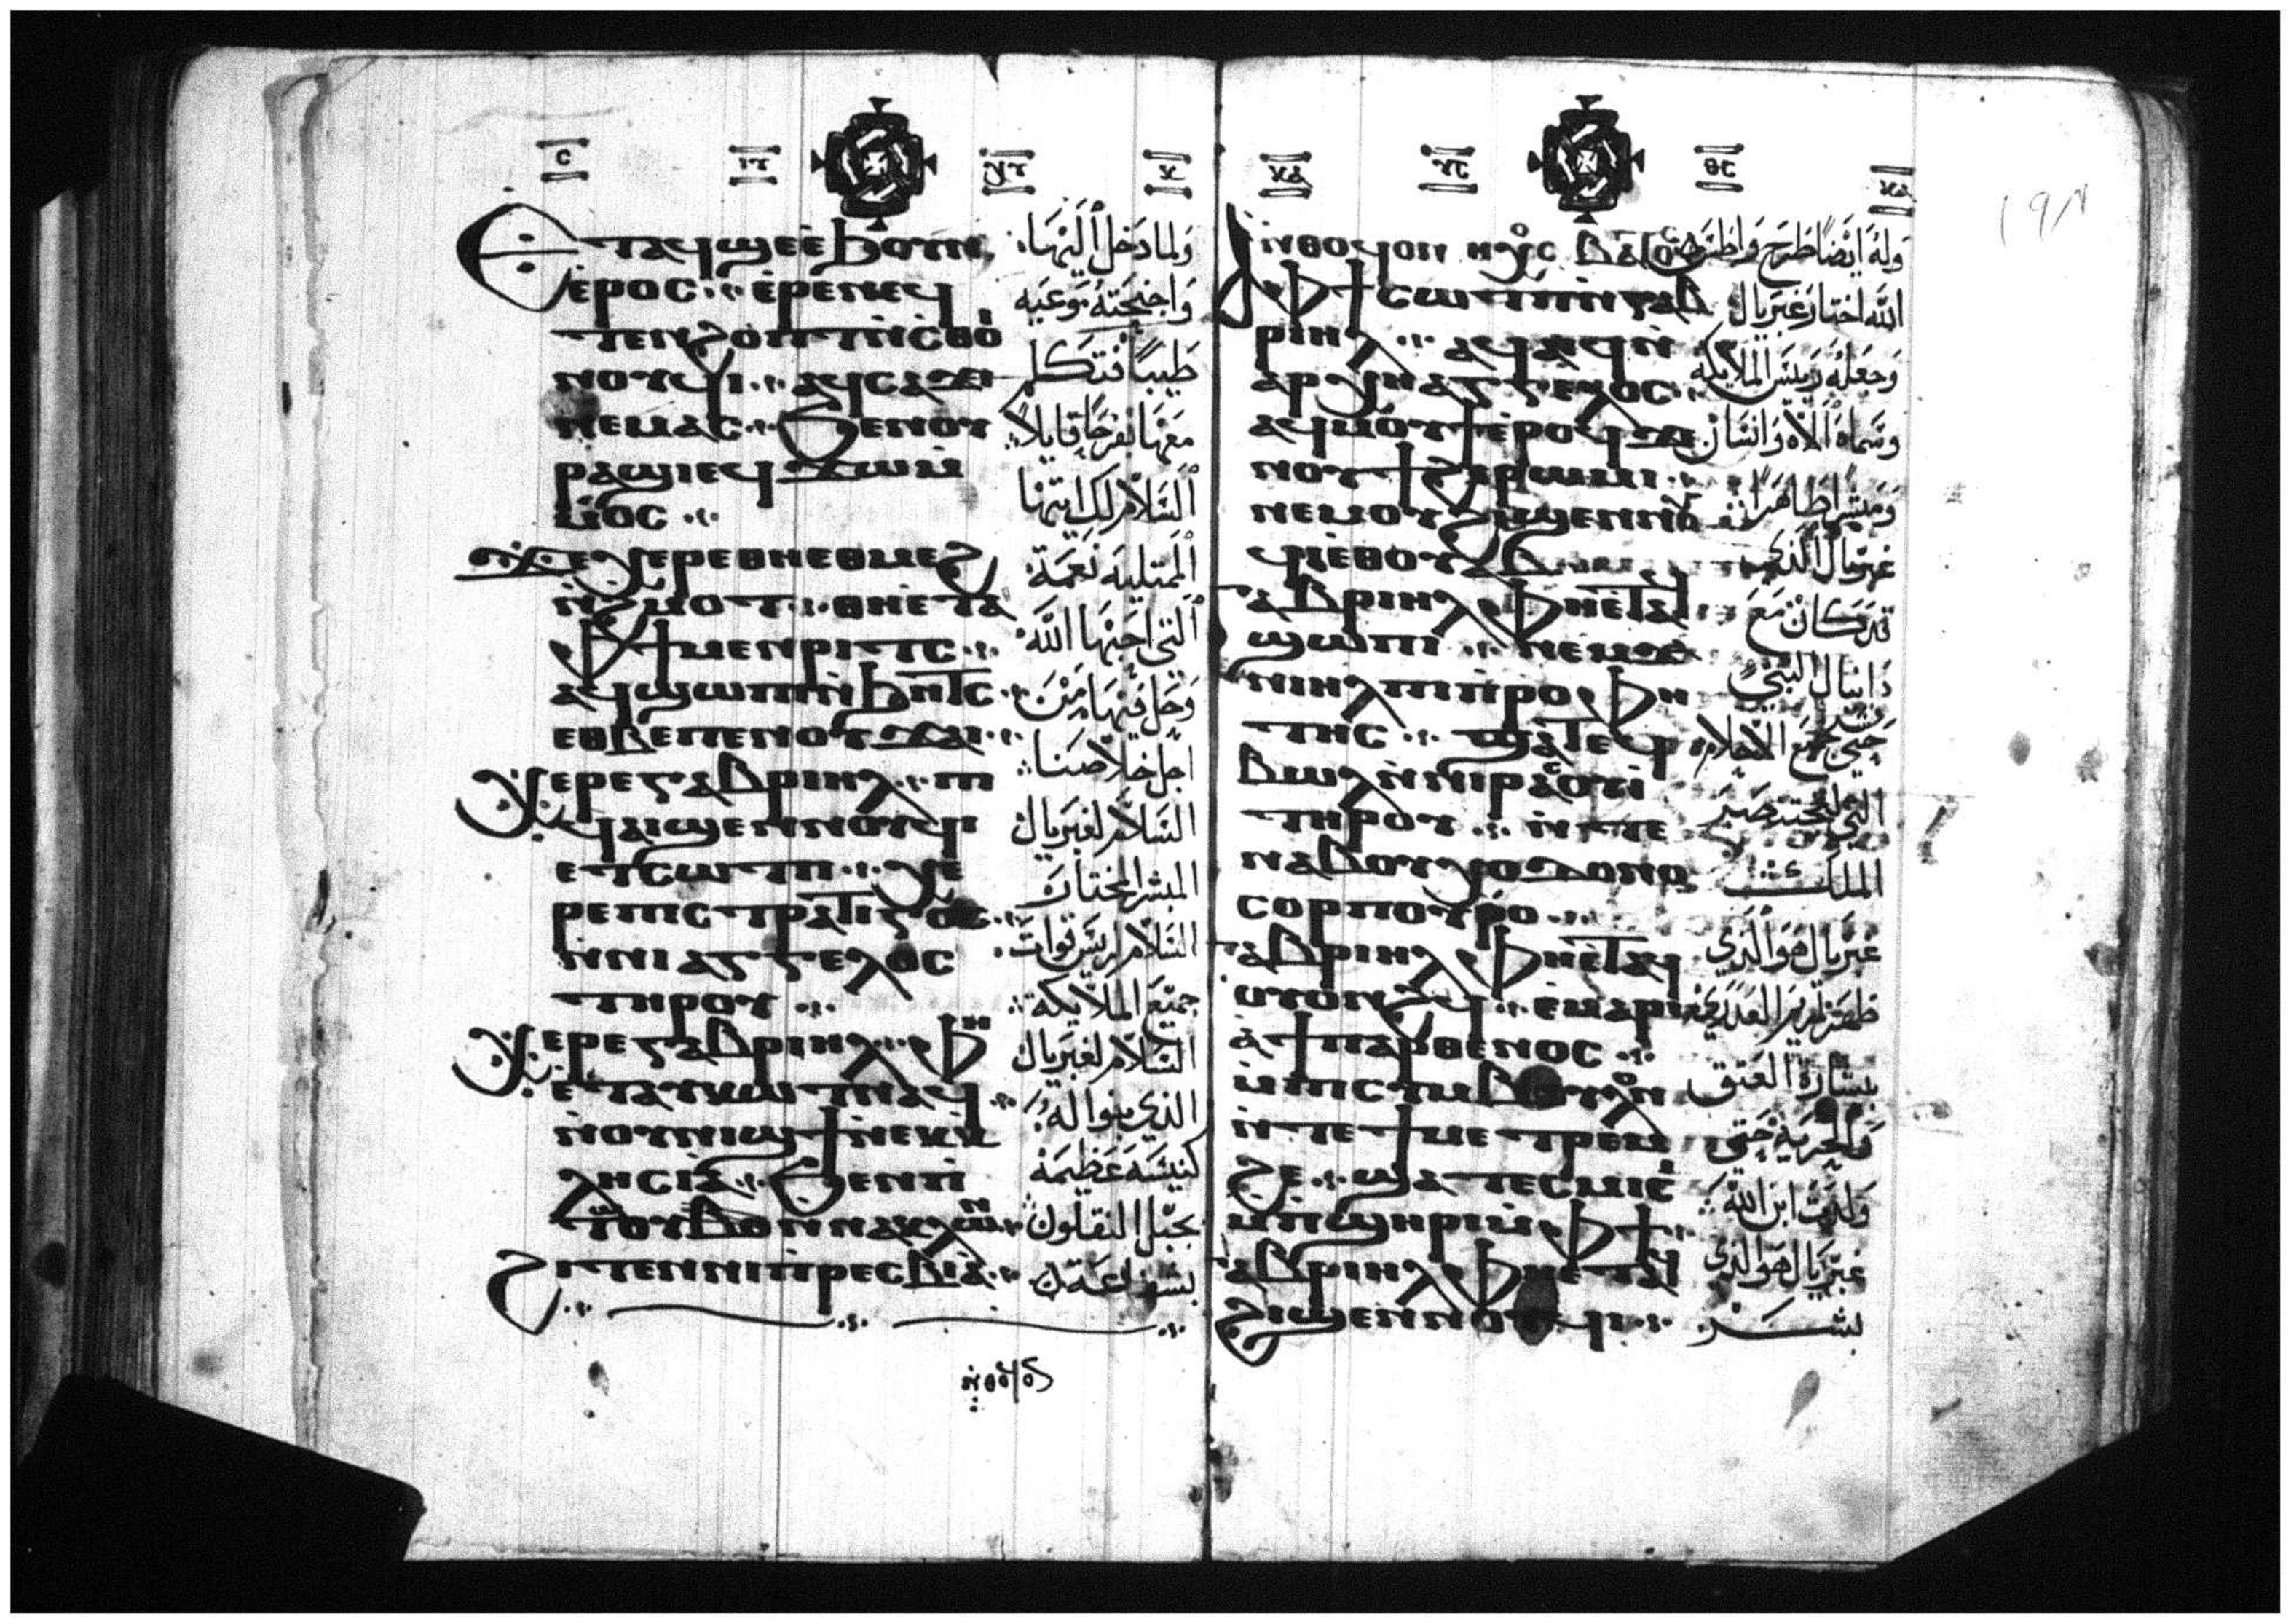 ⲉⲧⲁϥϣⲉⲉ̀ϧⲟⲩⲛ
ⲉ̀ⲣⲟⲥ ⲉ̀ⲣⲉⲛⲉϥ
ⲧⲉⲛϩ ⲟⲡⲧ ⲛ̀ⲥⲑⲟⲓ
ⲛⲟⲩϥⲓ ⲁϥⲥⲁϫⲓ
ⲛⲉⲙⲁⲥ ϧⲉⲛⲟⲩ
ⲣⲁϣⲓ ⲉϥϫⲱⲙ̀
ⲙⲟⲥ
ϫⲉⲭⲉⲣⲉ ⲑⲏⲉⲑⲙⲉϩ
ⲛ̀ϩⲙⲟⲧ ⲑⲏⲉ̀ⲧⲁ
ⲫϯ ⲙⲉⲛⲣⲓⲧⲥ
ⲁϥϣⲱⲡⲓ ⲛ̀ϧⲏⲧⲥ
ⲉⲑⲃⲉ ⲡⲉⲛⲟⲩϫⲁⲓ
ⲭⲉⲣⲉ ⲅⲁⲃⲣⲓⲏⲗ ⲡⲓ
ϥⲁⲓϣⲉⲛⲛⲟⲩϥⲓ
ⲉⲧⲥⲱⲧⲡ ⲭⲉ
ⲣⲉ ⲡⲓⲥⲧⲣⲁⲧⲓⲅⲟⲥ
ⲛ̀ⲛⲓⲁⲅⲅⲉⲗⲟⲥ
ⲧⲏⲣⲟⲩ
ⲭⲉⲣⲉ ⲅⲁⲃⲣⲓⲏⲗ ⲫⲏ
ⲉ̀ⲧⲁⲩⲕⲱⲧ ⲛⲁϥ
ⲛ̀ⲟⲩⲛⲓϣϯ ⲛ̀ⲉⲕⲕ
ⲗⲏⲥⲓⲁ̀ ϧⲉⲛ ⲡⲓ
ⲧⲱⲟⲩ ⲃⲟⲛ ⲛⲁⲕⲗⲱⲛ
ϩⲓⲧⲉⲛ ⲛⲓⲡ̀ⲣⲉⲥⲃⲓⲁ̀
ولما دخل اليها
واجنحته موعيه
طيبا فتكلم
معها بفرح قايلا
السلام لك ايتها
الممتليه نعمة
التي احبها الله
وحل فيها من
اجل خلاصنا
السلام لغبريال
المبشر المختار
السلام لريس قوات
جميع الملايكة
السلام لغبريال
الذي بنوا له
كنيسه عظيمه
بجبل النقلون
بشفاعة
ⲛ̀ⲑⲟϥ ⲟⲛ
ⲫϯ ⲥⲱⲧⲡ ⲛ̀ⲅⲁⲃ
ⲣⲓⲏⲗ ⲁϥⲁⲓϥ ⲛ̀
ⲁⲣⲭⲏⲁⲅⲅⲉⲗⲟⲥ
ⲁϥⲙⲟⲩϯ ⲉ̀ⲣⲟϥ ϫⲉ
ⲛⲟⲩϯ ϩⲓ ⲣⲱⲙⲓ
ⲛⲉⲙ ⲟⲩϩⲓϣⲉⲛⲛⲟⲩ
ϥⲓ ⲉⲑⲟⲩⲁⲃ
ⲅⲁⲃⲣⲓⲏⲗ ⲫⲏⲉ̀ⲧⲁϥ
ϣⲱⲡⲓ ⲛⲉⲙ ⲇⲁ
ⲛⲓⲏⲗ ⲡⲓⲡ̀ⲣⲟⲫⲏ
ⲧⲏⲥ ϣⲁⲧⲉϥ
ⲃⲱⲗ ⲛ̀ⲛⲓⲣⲁⲥⲟⲩⲓ̀
ⲧⲏⲣⲟⲩ ⲛ̀ⲧⲉ
ⲛⲁⲃⲟⲩⲭⲟⲇⲟⲛⲟ
ⲥⲟⲣ ⲡⲟⲩⲣⲟ
ⲅⲁⲃⲣⲓⲏⲗ ⲫⲏⲉ̀ⲧⲁϥ
ⲟⲩⲟⲛϩϥ ⲉ̀ⲙⲁⲣⲓ
ⲁ̀ ϯⲡⲁⲣⲑⲉⲛⲟⲥ
ⲙ̀ⲡⲓⲥⲧⲩⲙⲃⲟⲩⲗⲟⲛ
ⲛ̀ⲧⲉ ϯⲙⲉⲧⲣⲉⲙ
ϩⲉ ϣⲁⲧⲉⲥⲙⲓⲥⲓ
ⲙ̀ⲡϣⲏⲣⲓ ⲙ̀ⲫϯ
ⲅⲁⲃⲣⲓⲏⲗ ⲫⲏⲉ̀ⲧⲁϥ
ϩⲓϣⲉⲛⲛⲟⲩϥⲓ
وله ايضا طرح واطس
الله اختار غبريال
وجعله ريس الملايكة
وسماه الاه وانسان
ومبشرا طاهرا
غبريال الذي
كان مع
دانيال النبي
حتى فسر جميع الاحلام
الملك
غبريال هو الذي
ظهر لمريم العذرى
ببشارة العتق
والحرية حتى
ولدت ابن الله
غبريال هو الذي
بشر